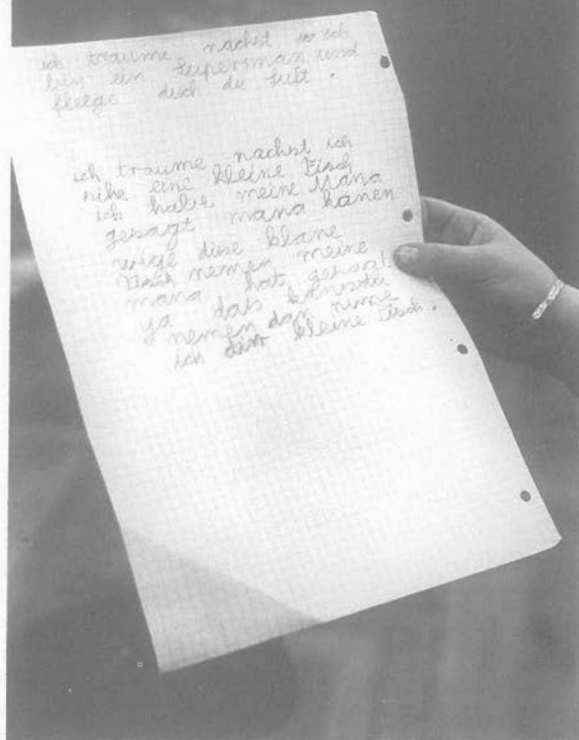 ich traume nachst wo ich
bin ein Superman und
fleege duch die luft.
ich traume nachst ich
sihe eine kleine Tisch
ich halse meine Mana
gesagt mana känen
wige dise klane
Tisch nemen meine
mana hat gesagt
ya das kanisdu
nemen dan nime
ich kleine Tisch.